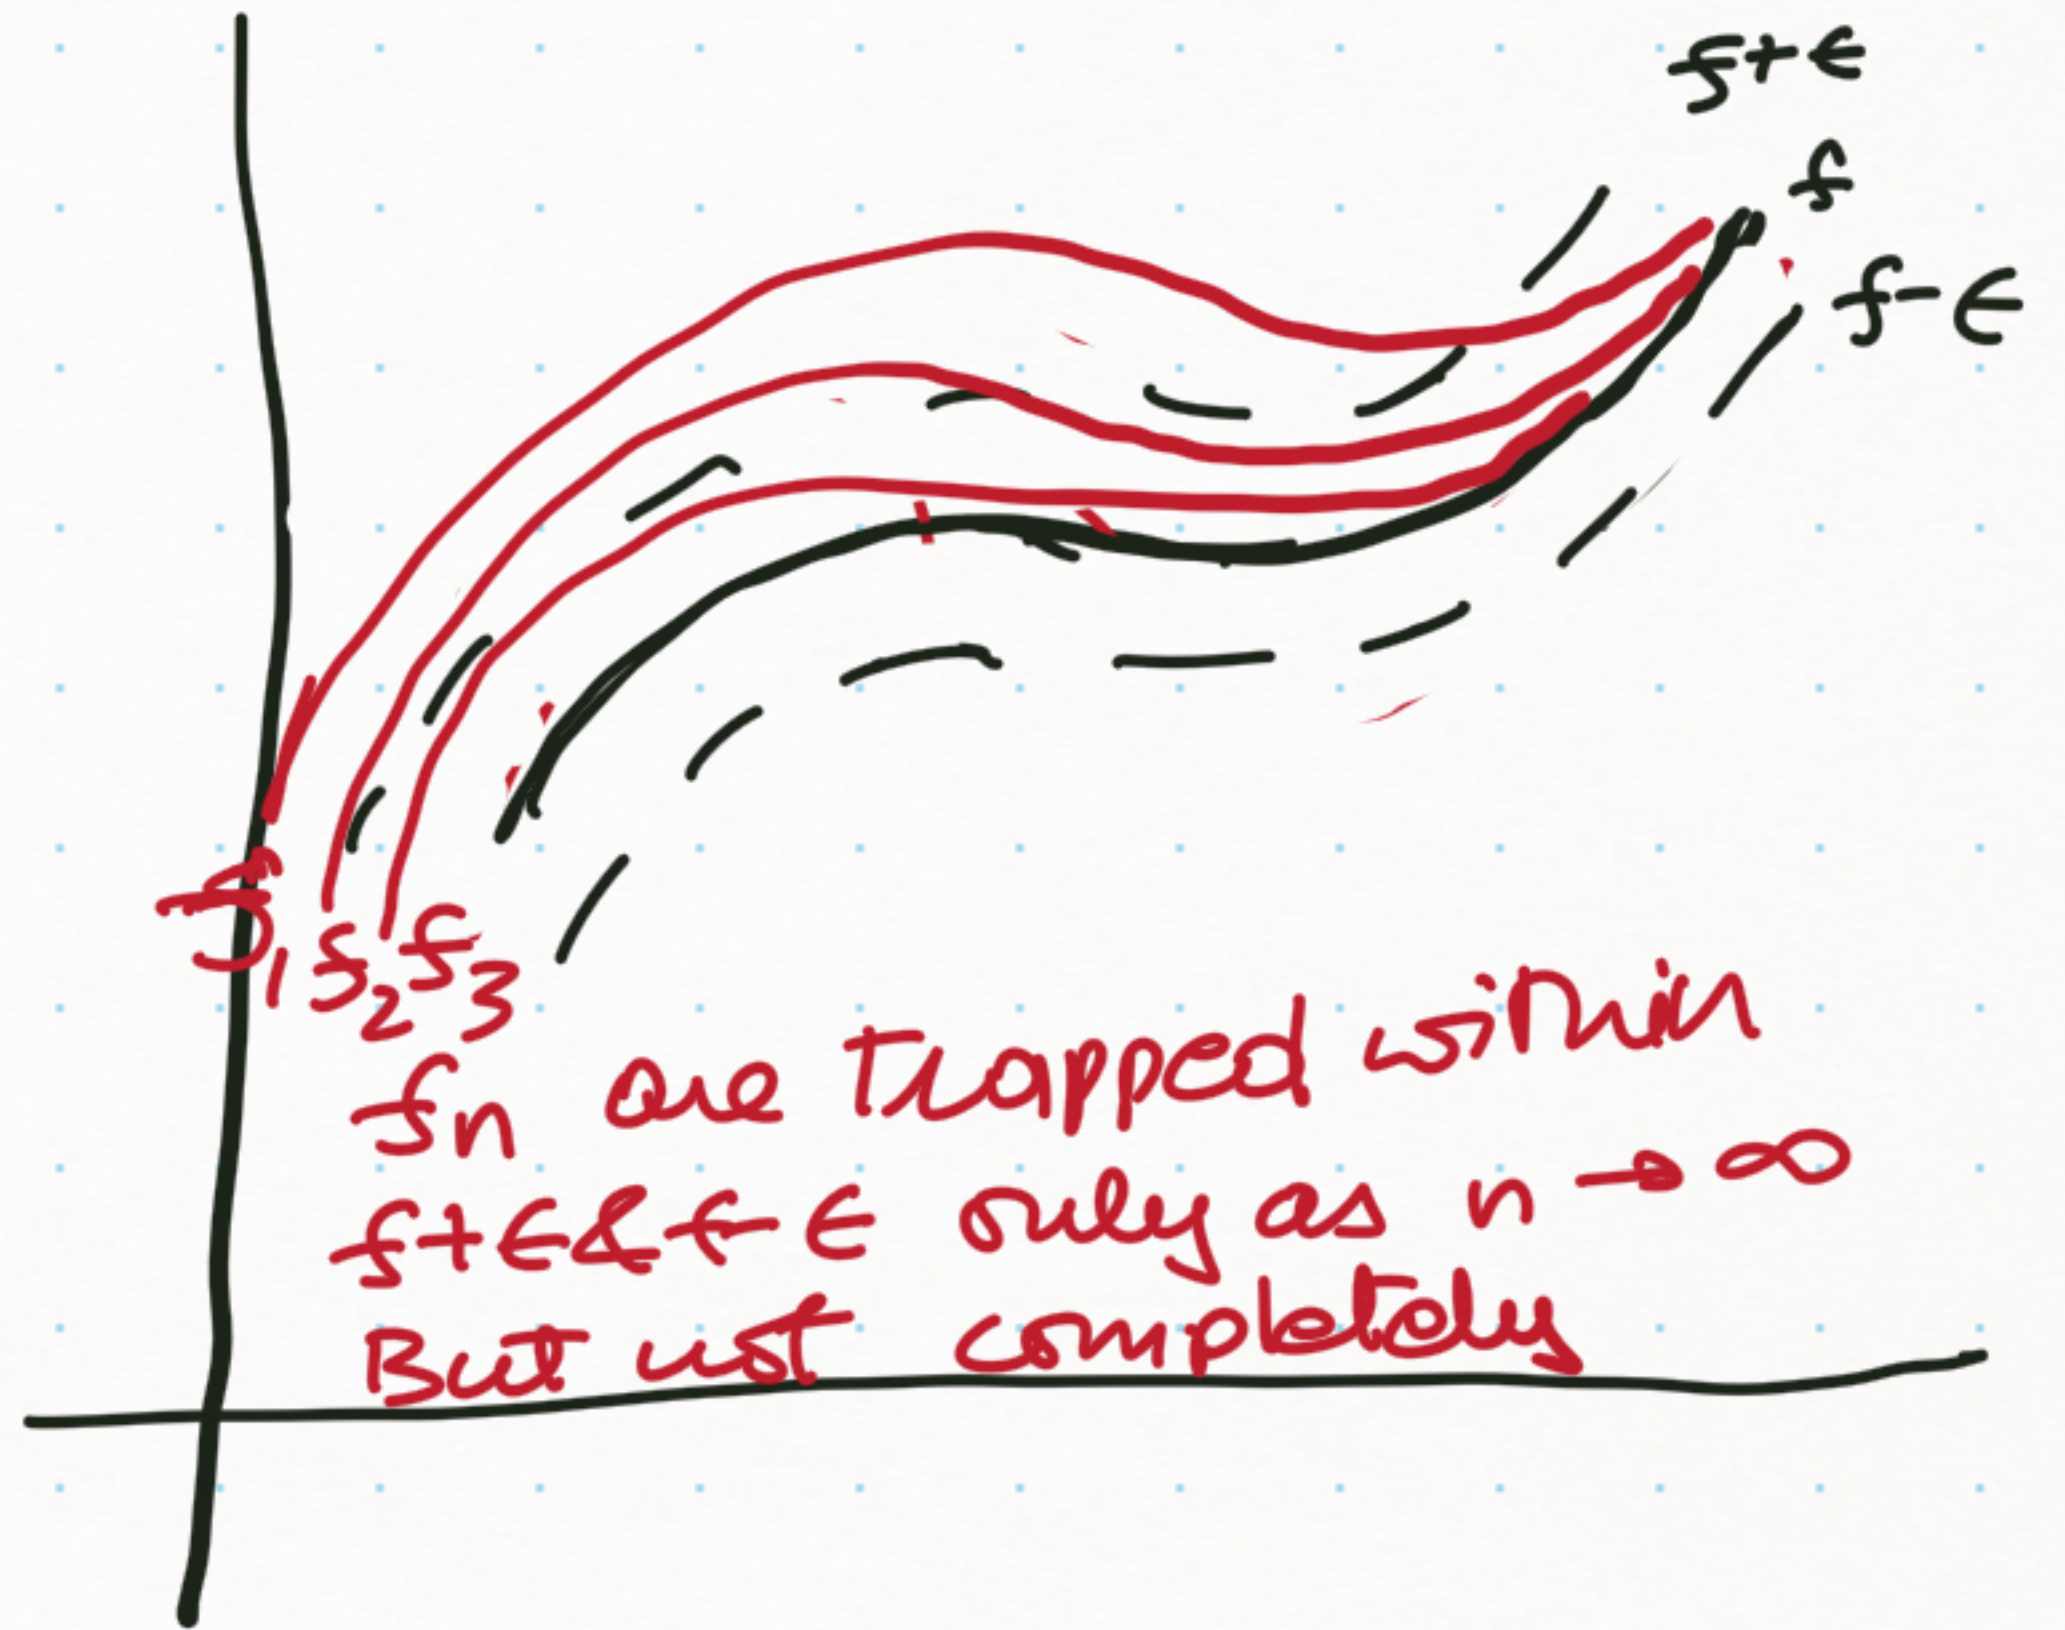 f+ϵ
f
f-ϵ
f1 f2 f3
fn are trapped within
f+ϵ & f-ϵ only as n → ∞
But not completely